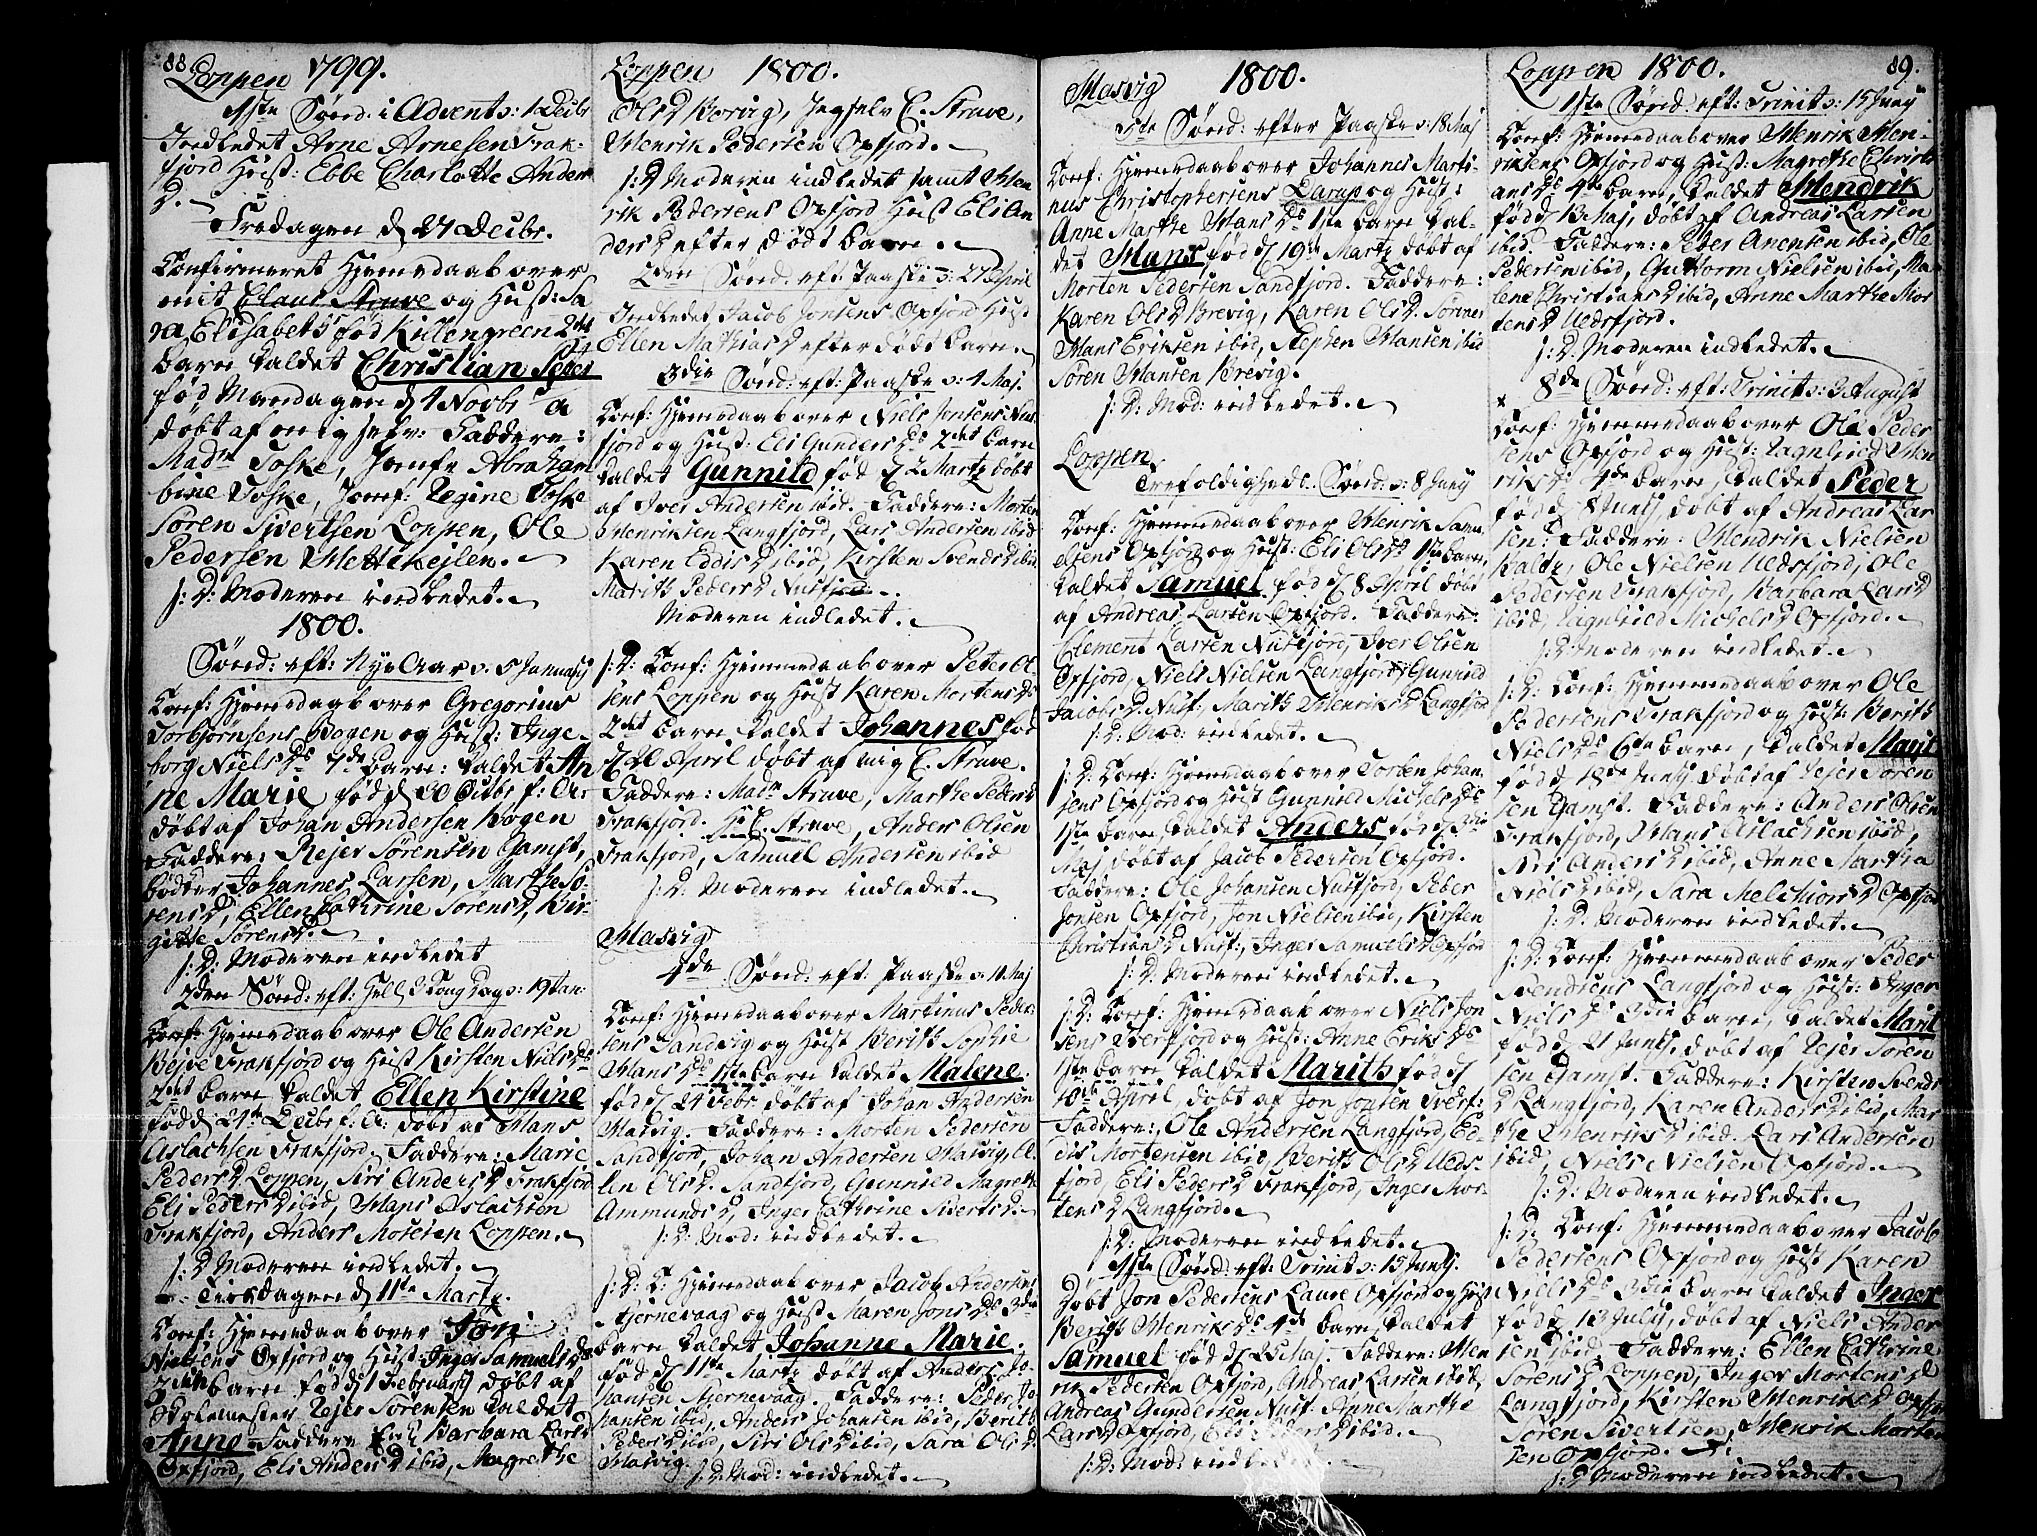 88. Loppen 1799.
1ste Sønd. i Advent: 1 Decbr
Indledet Arne Arnesen Frak-
fjord Hust: Ebbe Charlotte Anders
D.
Fredagen d 27 Decbr.
Confirmeret Hjemedaab over
mit Claus Struve og Hust: Sa
ra Elisabeths fød Killengreen 2det
Barn kaldet Christian Peter
fød Mandagen d 4 Novbr a
døbt af mig selv: Faddere:
Madm Foske, Jomfr Abraham
bine Foske, Jomf: Regine Foske
Søren Sivertsen Loppen, Ole
Pedersen Mettikejlen.
s: D: Moderen indledet.
1800.
Sønd: eft: Nyt Aar: 5 Januarij
Conf: Hjemedaab over Gregorius
Torbjørnsens Bogen og Hust: Inge-
borg Niels Ds 7de Barn: kaldet An
ne Marie fød d 30 Octbr f: A:
døbt af Johan Andersen Bogen
Faddere: Rejer Sørensen Gamst,
Bødker Johannes Larsen, Marthe Sø-
rens D, Ellen Cathrine Sørens D, Bir-
gitte Sørens D.
s: D: Moderen indledet
2den Sønd: eft: Hell 3 Kong Dag: 19 Jan:
Conf: Hjemedaab over Ole Andersen
Bejve Frakfjord og Hust Kirsten Niels Ds
2det Barn kaldet Ellen Kirstine
fød d 24de Decbr f: A: døbt af Hans
Aslachsen Frakfjord, Faddere: Marie
Peders D Loppen, Siri Anders D Frakfjord
Eli Peders D ibid, Hans Aslachsen
Frakfjord, Anders Mortsen Loppen.
s: D Moderen indledet.
Tirsdagen d 11te Martz.
Conf: Hjemedaab over Jon
Nielsens Øxfjord og Hust: Inger Samuels Ds
Barn fød d 1 Februarij døbt af
Skolemester Rejer Sørensen kaldet
Anne Faddere Barbara Lars D
Øxfjord, Eli Anders D ibid, Magrethe
Loppen 1800.
Ols D Borvig, Jeg selv C. Struve,
Henrik Pedersen Øxfjord.
s: D Moderen indledet samt Hen
rik Pedersens Øxfjord Hust Eli An
ders D efter dødt Barn.
2den Sønd: eft: Paaske: 27 April
Indledet Jacob Jonsens Øxfjord Hust
Ellen Mathias D efter dødt Barn.
3die Sønd: eft: Paaske: 4 Maj.
Conf: Hjemedaab over Niels Jonsens Nus
fjord og Hust: Eli Gunders Ds 2det Barn
kaldet Gunnild fød d 2 Martz døbt
af Iver Andersen ibid. Faddere: Morten
Henriksen Langfjord, Lars Andersen ibid
Karen Eddis D ibid, Kirsten Svends D ibid
Marith Peders D Nusfjord.
Moderen indledet.
s: D: Conf: Hjemmedaab over Peter Ol
sens Loppen og Hust Karen Mortens Ds
2det Barn kaldet Johannes fød
d 20 April døbt af mig C. Struve.
Faddere: Madm Struve, Marthe Peders D
Frakfjord. Hr C. Struve, Anders Olsen
Frakfjord, Samuel Andersen ibid
s: D: Moderen indledet.
Masvig
4de Sønd: eft: Paaske: 11 Maj
Conf: Hjemedaab over Martinus Peder
sens Sandvig og Hust Berith Sophie
Hans Ds 1ste Barn kaldet Malene.
fød d 24 Febr døbt af Johan Andersen
Masvig. Faddere: Morten Pedersen
Sandfjord, Johan Andersen Masvig, El
len Ols D. Sandfjord, Gunnild Magrethe
Ammunds D, Inger Cathrine Siverts D
s: D: Mod: indledet.
s: D: C: Hjemedaab over Jacob Andersens
Stjernevaag og Hust Maren Jons Ds 3die
Barn kaldet Johanne Marie.
fød d 11te Martz døbt af Anders Jo
hansen Stjernevaag. Faddere: Peder Jo
hansen ibid, Anders Johansen ibid, Berith
Peders D ibid, Siri Ols D ibid, Sara Ols D
Masvig. s: D: Mod: indledet.
Masvig 1800.
5te Sønd: efter Paaske: 18 Maj
Conf: Hjemedaab over Johannes Marti
nus Christophersens Darup og Hust:
Anne Marthe Hans Ds 1ste Barn kal-
det Hans, fød d 19de Martz døbt af
Morten Pedersen Sandfjord. Faddere:
Karen Ols D Brevig, Karen Ols D. Sørines
Hans Eriksen ibid, Stephen Hansen ibid
Søren Hansen Brevig.
s: D: Mod: indledet.
Loppen
Trefoldigheds. Sønd: 8 Junij
Conf: Hjemmedaab over Henrik Samu
elsens Øxfjord og Hust: Eli Ols D 1ste Barn,
kaldet Samuel fød d 8 April døbt
af Andreas Larsen Øxfjord. Faddere:
Clement Larsen Nusfjord, Iver Olsen
Øxfjord, Niels Nielsen Langfjord, Gunnild
Jacobs D. Nusf:, Marith Henriks D Langfjord
s: D: Mod: indledet.
s: D: Conf: Hjemedaab over Torben Johan
sens Øxfjord og Hust Gunnild Michels Ds
1ste Barn kaldet Anders fød d 3die
Maj døbt af Jacob Pedersen Øxfjord.
Faddere: Ole Johansen Nusfjord, Peder
Jonsen Øxfjord, Jon Nielsen ibid, Kirsten
Christians D Nusf:, Inger Samuels D Øxfjord
s: D: Moderen indledet.
s: D: Conf: Hjemedaab over Niels Jon
sens Sverfjord og Hust: Anne Eriks Ds
1ste Barn kaldet Marith fød d
10de April, døbt af Jon Jonsen Sverf:
Faddere: Ole Andersen Langfjord, Ed-
dis Mortensen ibid, Berith Ols D Ueds-
fjord, Eli Peders D Frakfjord, Inger Mor-
tens D Langfjord.
s: D: Moderen indledet.
1ste Sønd: eft: Trinit: 15 Junij.
Døbt Jon Pedersens Laure Øxfjord og Hust
Berith Henriks Ds 4de Barn, kaldet
Samuel fød d 25 Maj. Faddere: Hen
rik Pedersen Øxfjord, Andreas Larsen ibid,
Andreas Gundersen Nusf: Anne Marthe
Lars D Øxfjord, Eli Peders D ibid.
s: D: Mod: indledet.
Loppen 1800. 89.
1ste Sønd: eft: Trinit: 15 Junij
Conf: Hjemedaab over Henrik Hen-
riksens Øxfjord og Hust: Magrethe Christi
ans Ds 4de Barn, kaldet Hendrik
fød d 13 Maj, døbt af Andreas Larsen
ibid. Faddere: Peder Anensen ibid, Ole
Pedersen ibid, Guttorm Nielsen ibid, Ma
lene Christians D ibid, Anne Marthe Mor
tens D Uedsfjord.
s: D: Moderen indledet.
8de Sønd: eft: Trinit: 3 August
Conf: Hjemmedaab over Ole Peder
sens Øxfjord og Hust: Ragnhild Hen
riks D 4de Barn, kaldet Peder
fød d 8 Junij, døbt af Andreas Lar
sen. Faddere: Hendrik Nielsen
Kaltz, Ole Nielsen Uedsfjord, Ole
Pedersen Frakfjord, Barbara Lars D
ibid, Ragnhild Michels D Øxfjord.
s: D: Moderen indledet.
s: D: Conf: Hjemmedaab over Ole
Pedersens Frakfjord og Hust: Berith
Niels Ds 6te Barn, kaldet Marit
fød d 18de Junij. døbt af Rejer Søren
sen Gamst. Faddere: Anders Olsen
Frakfjord, Hans Aslachsen ibid,
Siri Anders D ibid, Anne Martha
Niels D ibid, Sara Melchiors D Øxfjord
s: D: Moderen indledet.
s: D: Conf: Hjemmedaab over Peder
Svendsens Langfjord og Hust: Inger
Niels Ds 3die Barn, kaldet Marit
fød d 21 Junij, døbt af Rejer Søren
sen Gamst. Faddere: Kirsten Svends
D Langfjord, Karen Anders D ibid, Mar
the Henriks D ibid. Lars Andersen
ibid, Niels Nielsen Øxfjord.
s: D: Moderen indledet.
s: D: Conf: Hjemmedaab over Jacob
Pedersens Øxfjord og Hust Karen
Niels Ds 3die Barn kaldet Inger
fød d 13 Julij, døbt af Niels Ander
sen ibid. Faddere: Ellen Cathrine
Sørens D Loppen, Inger Mortens D
Langfjord, Kirsten Henriks D Øxfjord
Søren Sivertsen, Henrik Morten
sen Øxfjord.
s: D Moderen indledet.